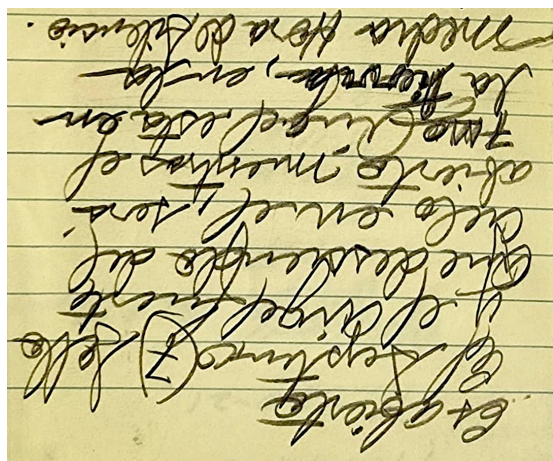 Es abierto
El septimo (7) sello
y el angel fuerte
que desciende del
cielo en el, será
abierto mientras el
7mo Angel está en
la tierra, en la
media Hora de silencio.